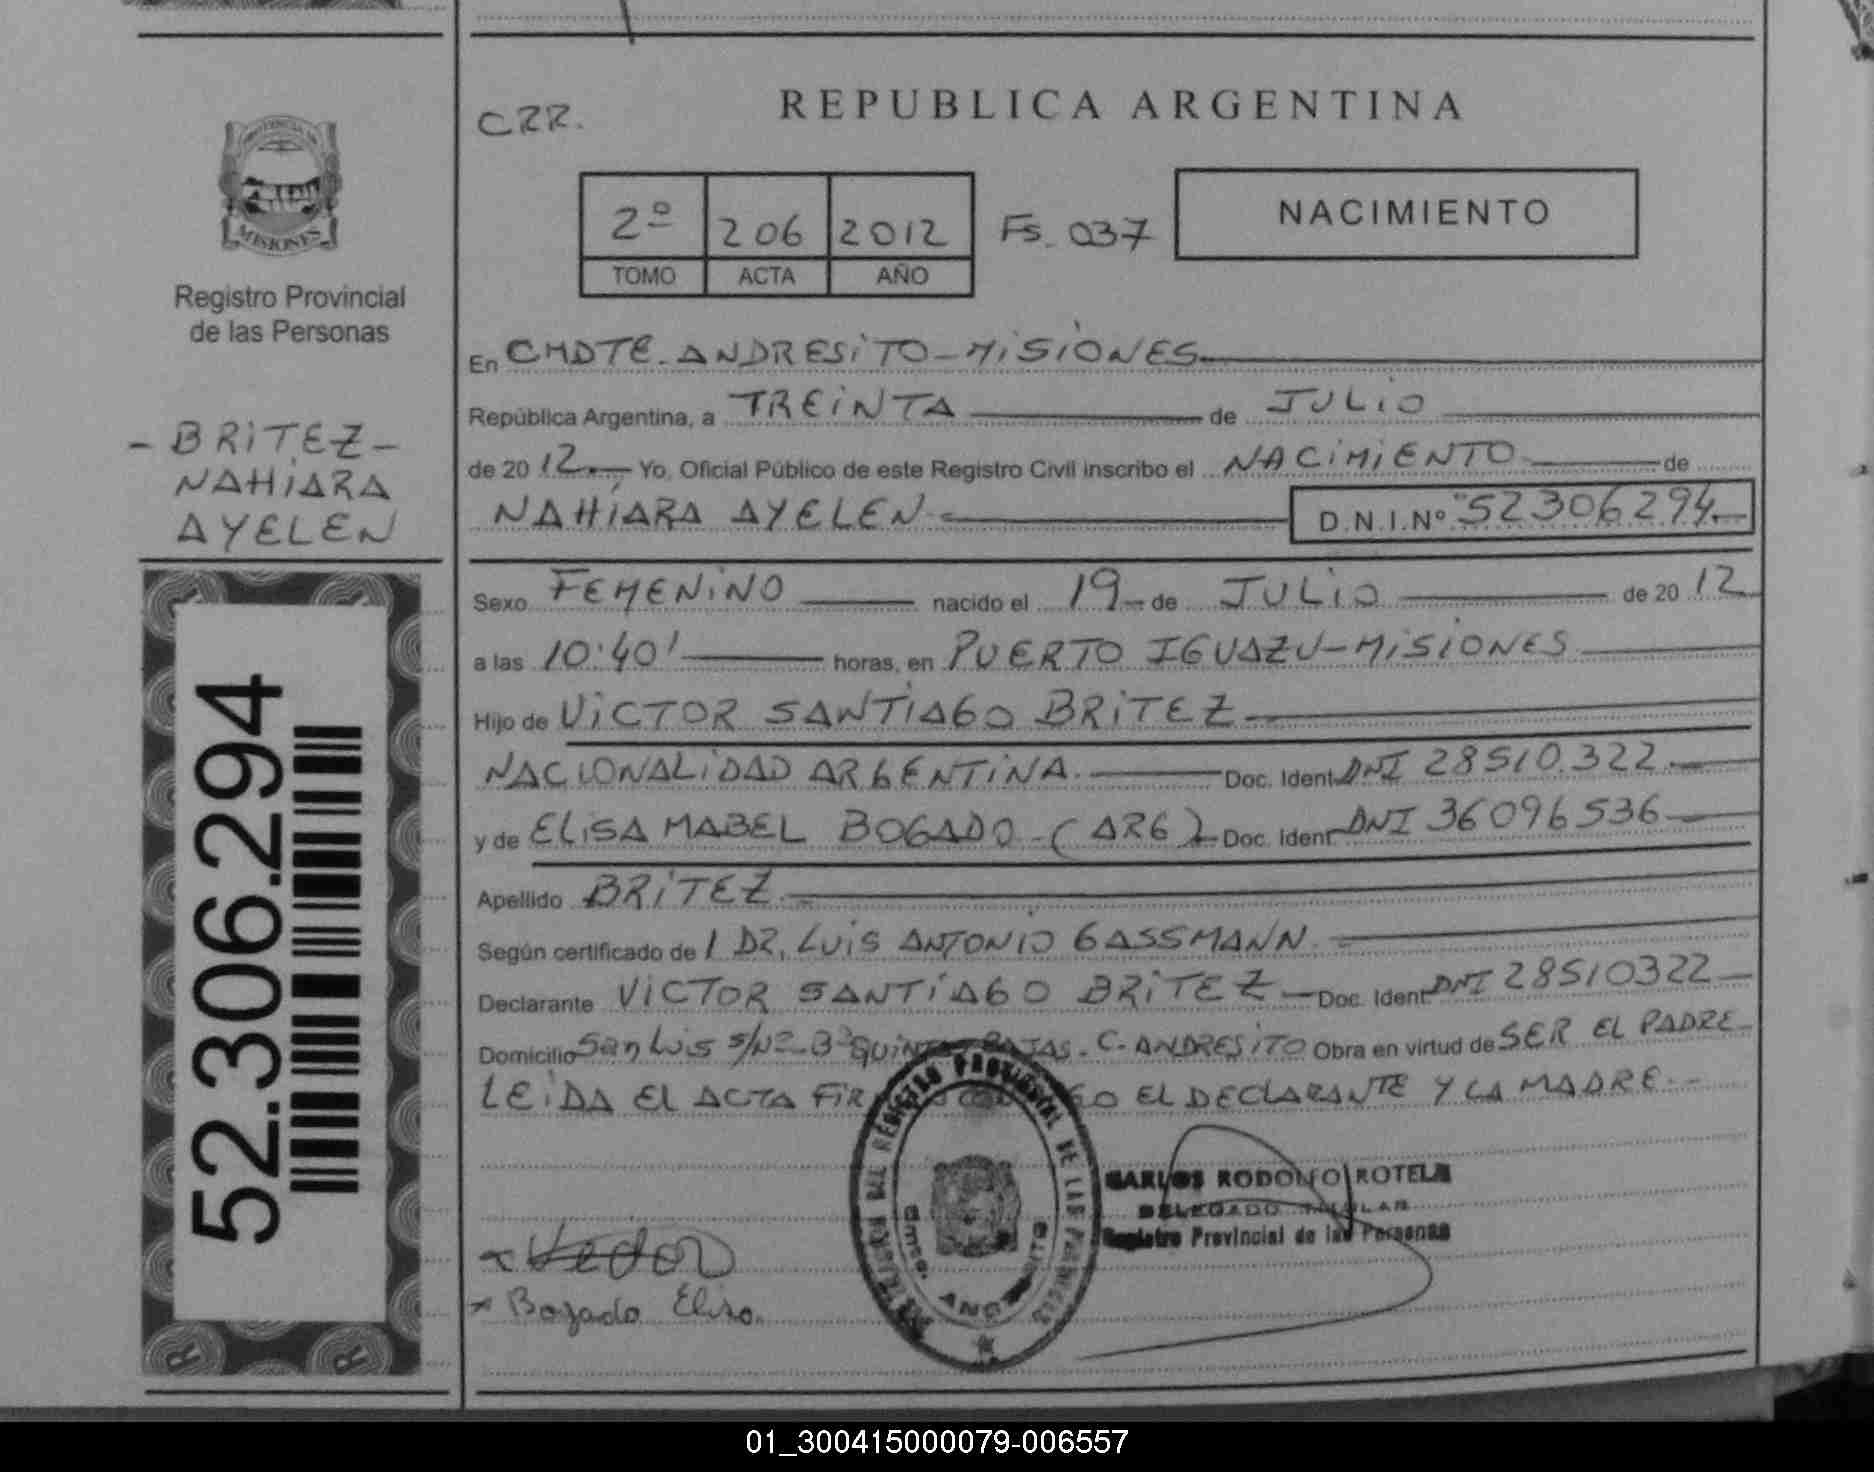 CRR.
REPUBLICA ARGENTINA
2º 206 2012 Fs. 037
TOMO ACTA AÑO
NACIMIENTO
PROVINCIA DE
MISIONES
Registro Provincial
de las Personas
- BRITEZ -
NAHIARA
AYELEN
52.306.294
En CMDTE. ANDRESITO - MISIONES
República Argentina, a TREINTA de JULIO
de 20 12. Yo, Oficial Público de este Registro Civil inscribo el NACIMIENTO de
NAHIARA AYELEN D.N.I.Nº 52306294
Sexo FEMENINO nacido el 19 de JULIO de 20 12
a las 10:40' horas, en PUERTO IGUAZU - MISIONES
Hijo de VICTOR SANTIAGO BRITEZ
NACIONALIDAD ARGENTINA. Doc. Ident. DNI 28510.322
y de ELISA MABEL BOGADO - (ARG) Doc. Ident. DNI 36096536
Apellido BRITEZ
Según certificado de / DR. LUIS ANTONIO GASSMANN.
Declarante VICTOR SANTIAGO BRITEZ - Doc. Ident. DNI 28510322
Domicilio San Luis S/Nº - Bº QUINTAS BAJAS. C. ANDRESITO Obra en virtud de SER EL PADRE
LEIDA EL ACTA EL DECLARANTE Y LA MADRE. -
DEL REGISTRO PROVINCIAL DE LAS PERSONAS
CARLOS RODOLFO ROTELA
DELEGADO TITULAR
Registro Provincial de las Personas
x Bogado Elisa.
01_300415000079-006557